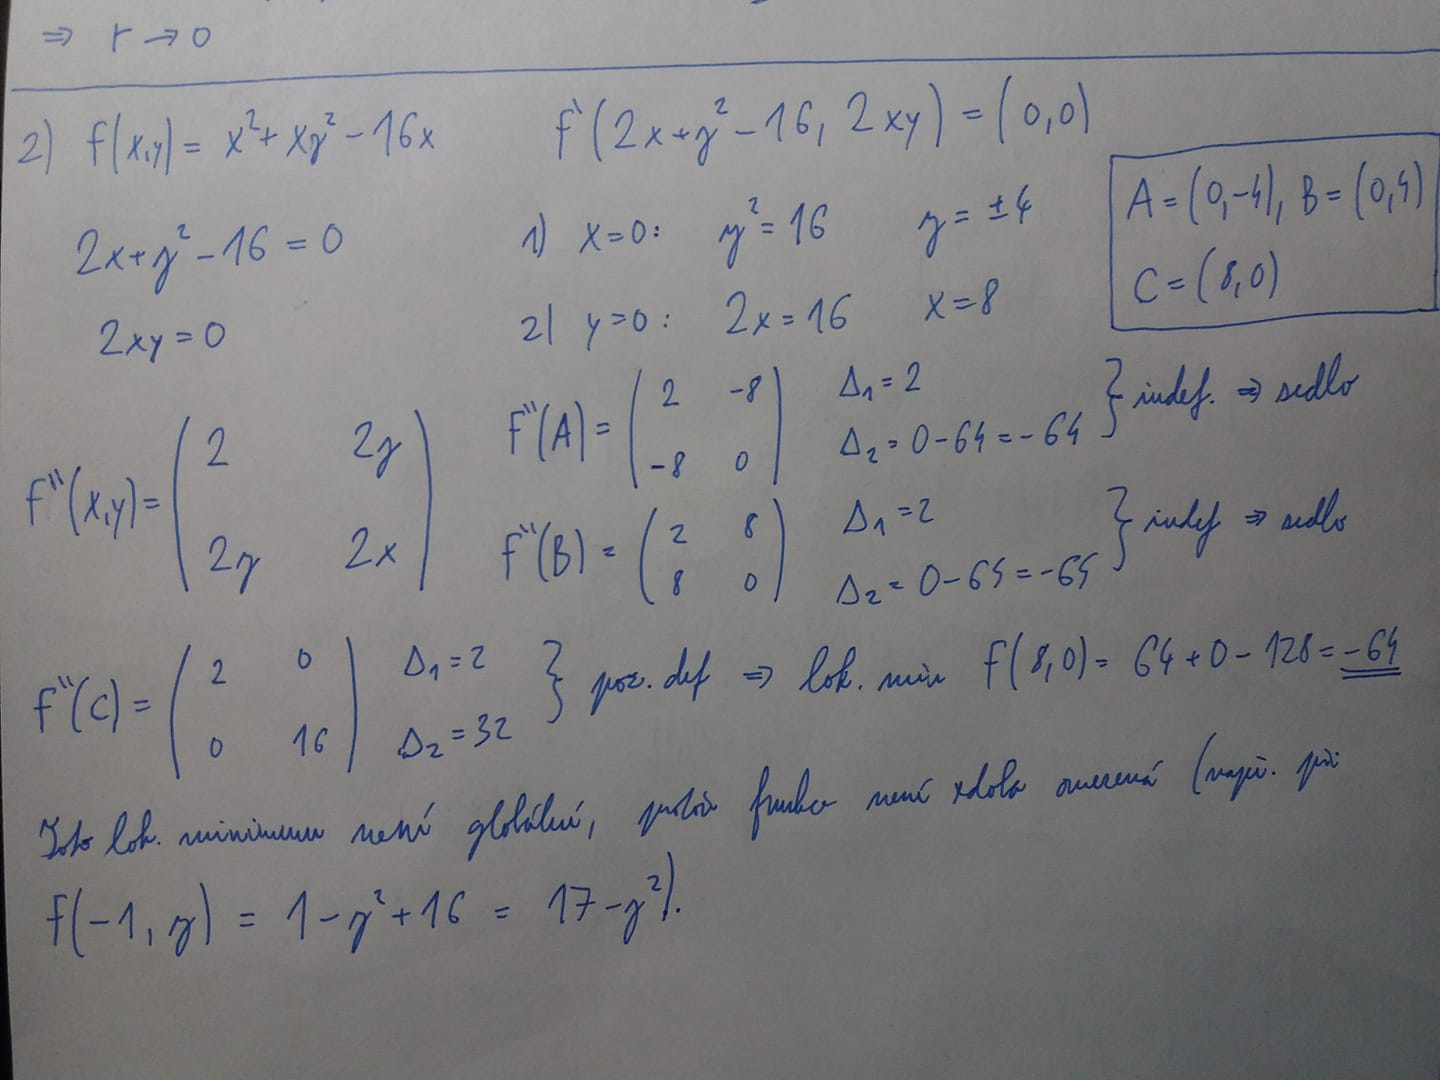 ⇒ r → 0
2) f(x,y) = x² + xy² - 16x    f'(2x+y²-16, 2xy) = (0,0)
2x+y²-16 = 0    1) x=0: y²=16    y=±4    A=(0,-4), B=(0,4)
2xy=0    2) y=0: 2x=16    x=8    C=(8,0)
f''(x,y) = (2 2y
2y 2x)
f''(A) = (2 -8    Δ₁=2
-8 0)    Δ₂=0-64=-64 } indef. ⇒ sedlo
f''(B) = (2 8    Δ₁=2
8 0)    Δ₂=0-64=-64 } indef ⇒ sedlo
f''(C) = (2 0    Δ₁=2
0 16)    Δ₂=32 } poz. def ⇒ lok. min f(8,0) = 64+0-128=-64
Toto lok. minimum není globální, protože funkce není zdola omezená (např. při
f(-1, y) = 1-y²+16 = 17-y²).